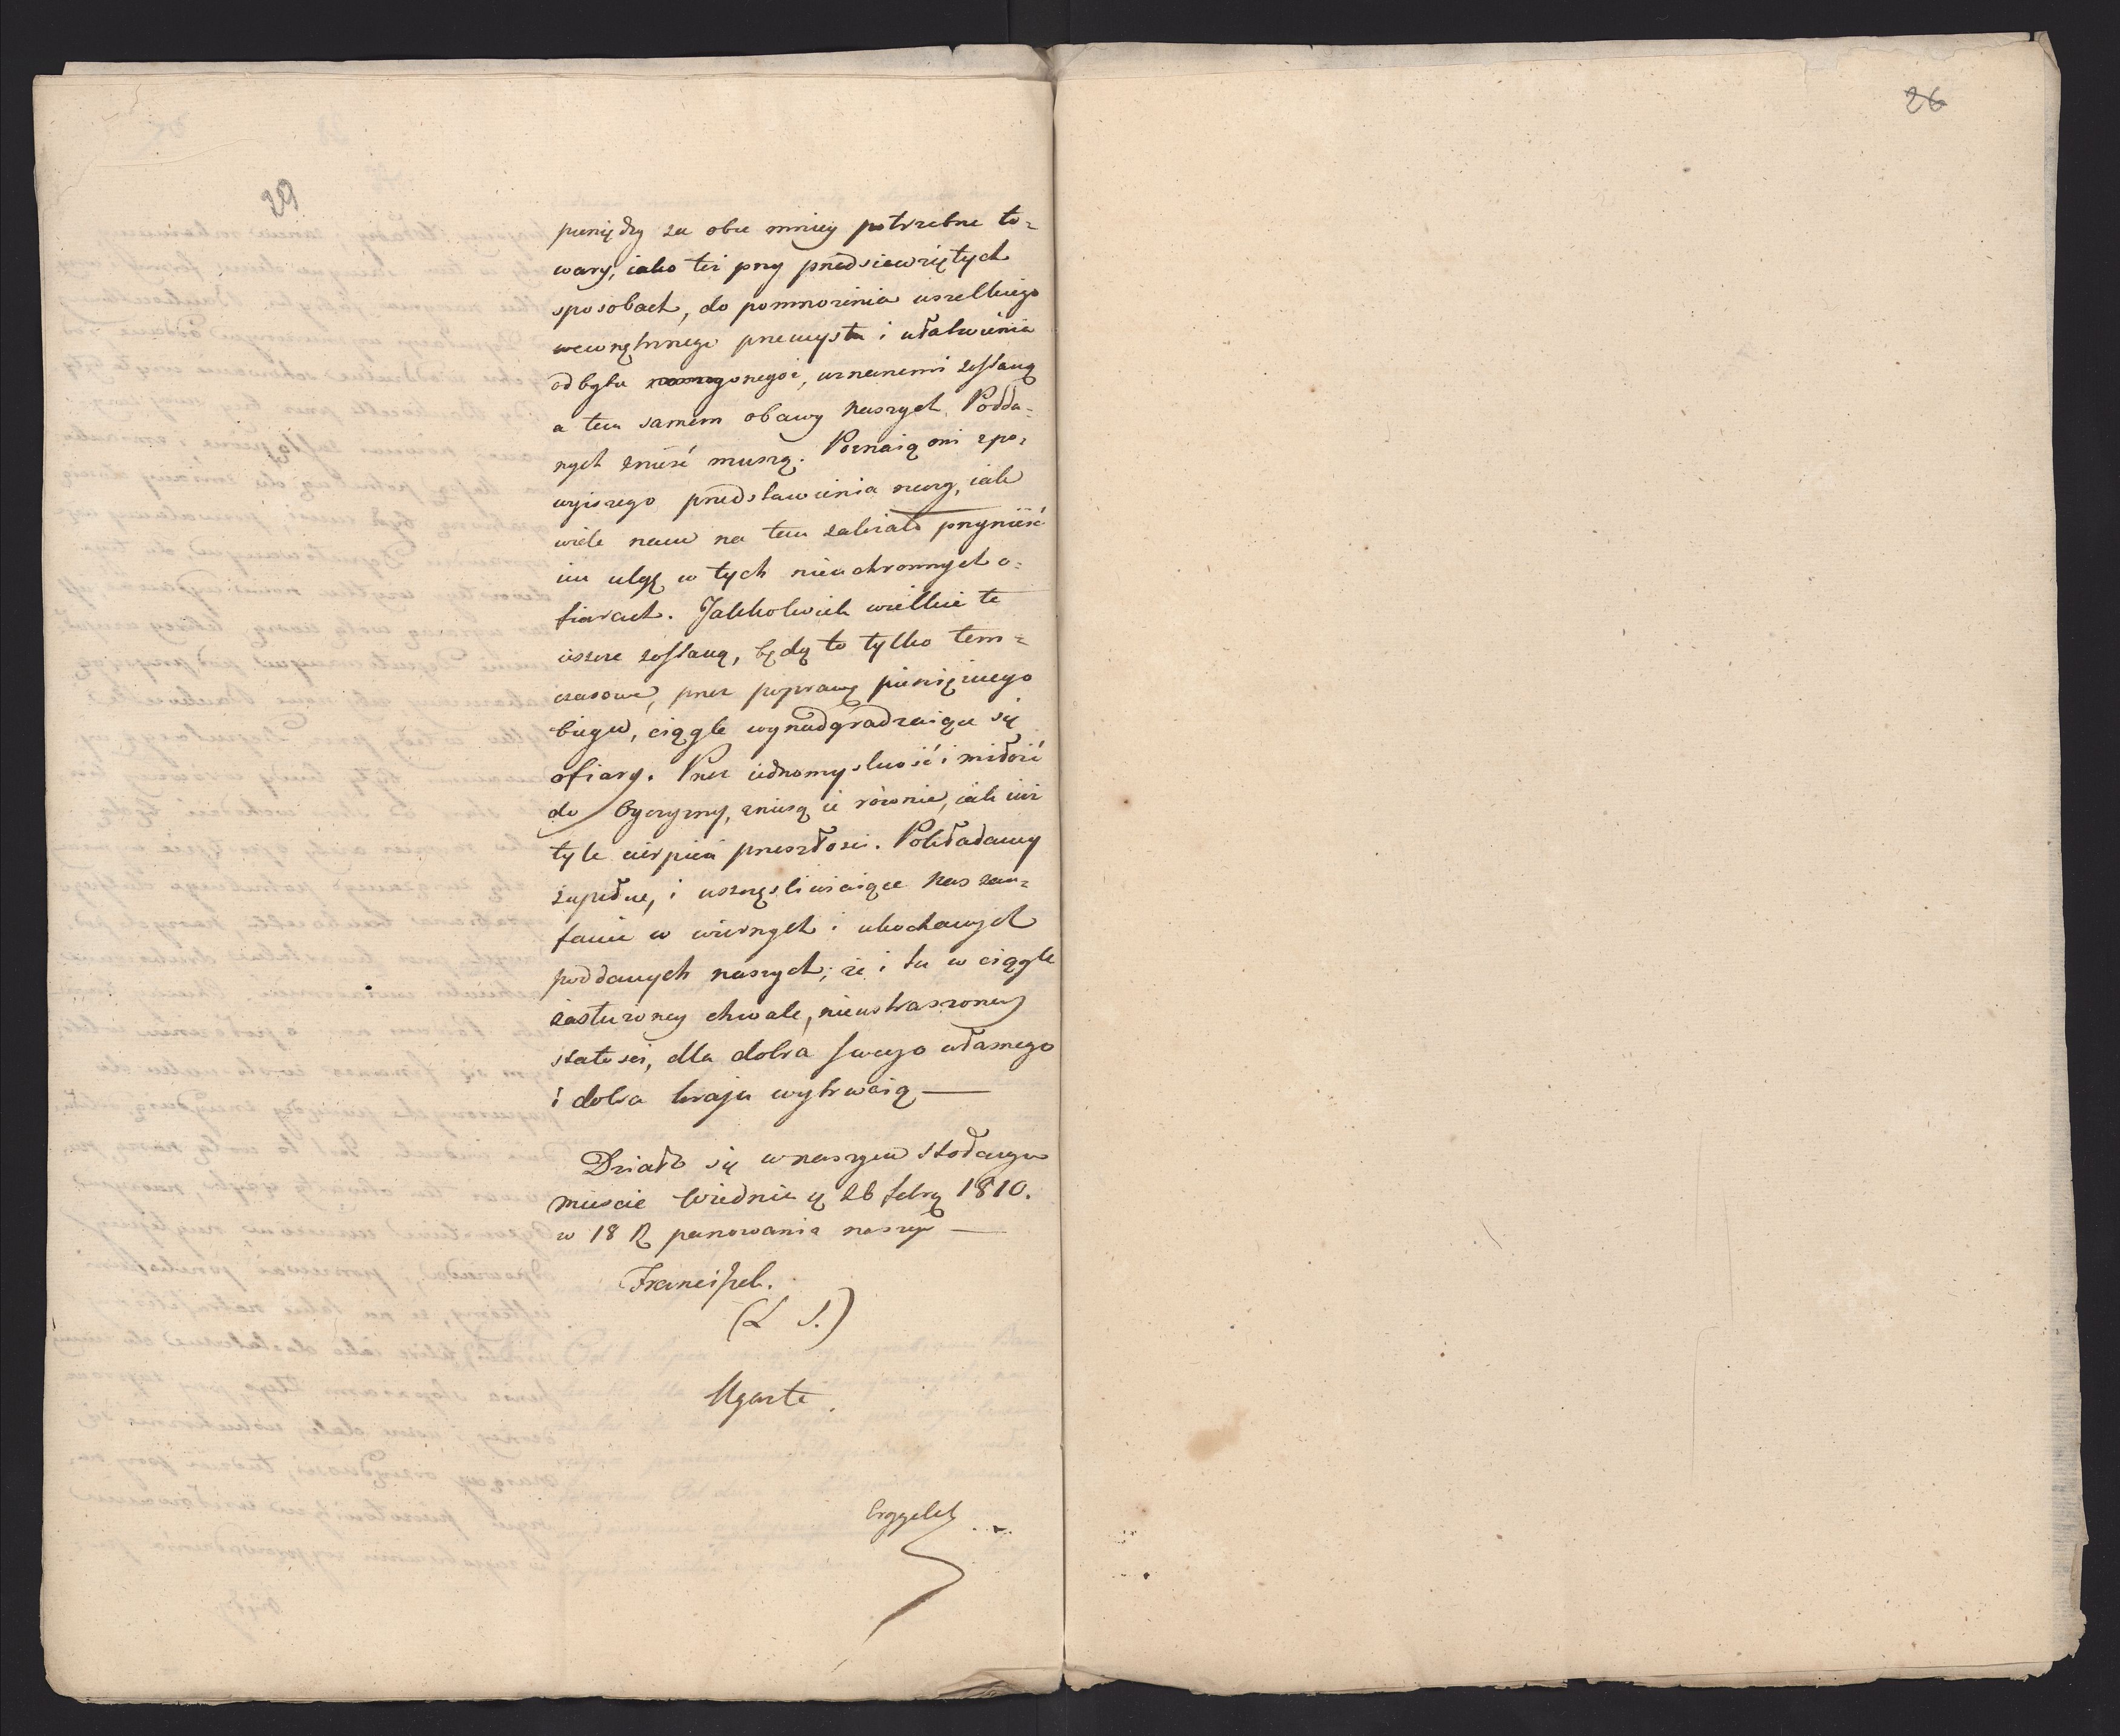 26
29
pieniędzy za obce mniey potrzebne to=
wary, iako też przy przedsiewziętych
sposobach, do pomnożenia wszelkiego
wewnętrznego przemysłu i ułatwienia
odbytu onegoż, uznanemi zostaną
a tem samem obawy naszych Podda=
nych znieść muszą. Poznaią oni z po=
wyższego przedstawienia rzeczy, iak
wiele nam na tem zależało przynieść
im ulgę w tych nieuchronnych o=
fiarach. Jakkolwiek wielkie te
ieszcze zostaną, będą to tylko tem=
czasowe, przez poprawę pieniężnego
biegu, ciągle wynadgradzaiące się
ofiary. Przez iednomyslność i miłość
do Oyczyzny, zniesą ie równie, iak iuż
tyle cierpień przeszłości. Pokładamy
zupełne, i uszczęśliwiaiące nas zau=
fanie w wiernych i ukochanych
poddanych naszych; że i tu w ciągle
zasłużoney chwale, nieustraszoney
stałości, dla dobra swego własnego
i dobra kraju wytrwaią —
Działo się w naszym stołecznym
mieście Wiedniu d. 26 febr. 1810.
w 18 R. panowania naszego —
Franciszek.
(L S.)
Ugarte.
Erggelet